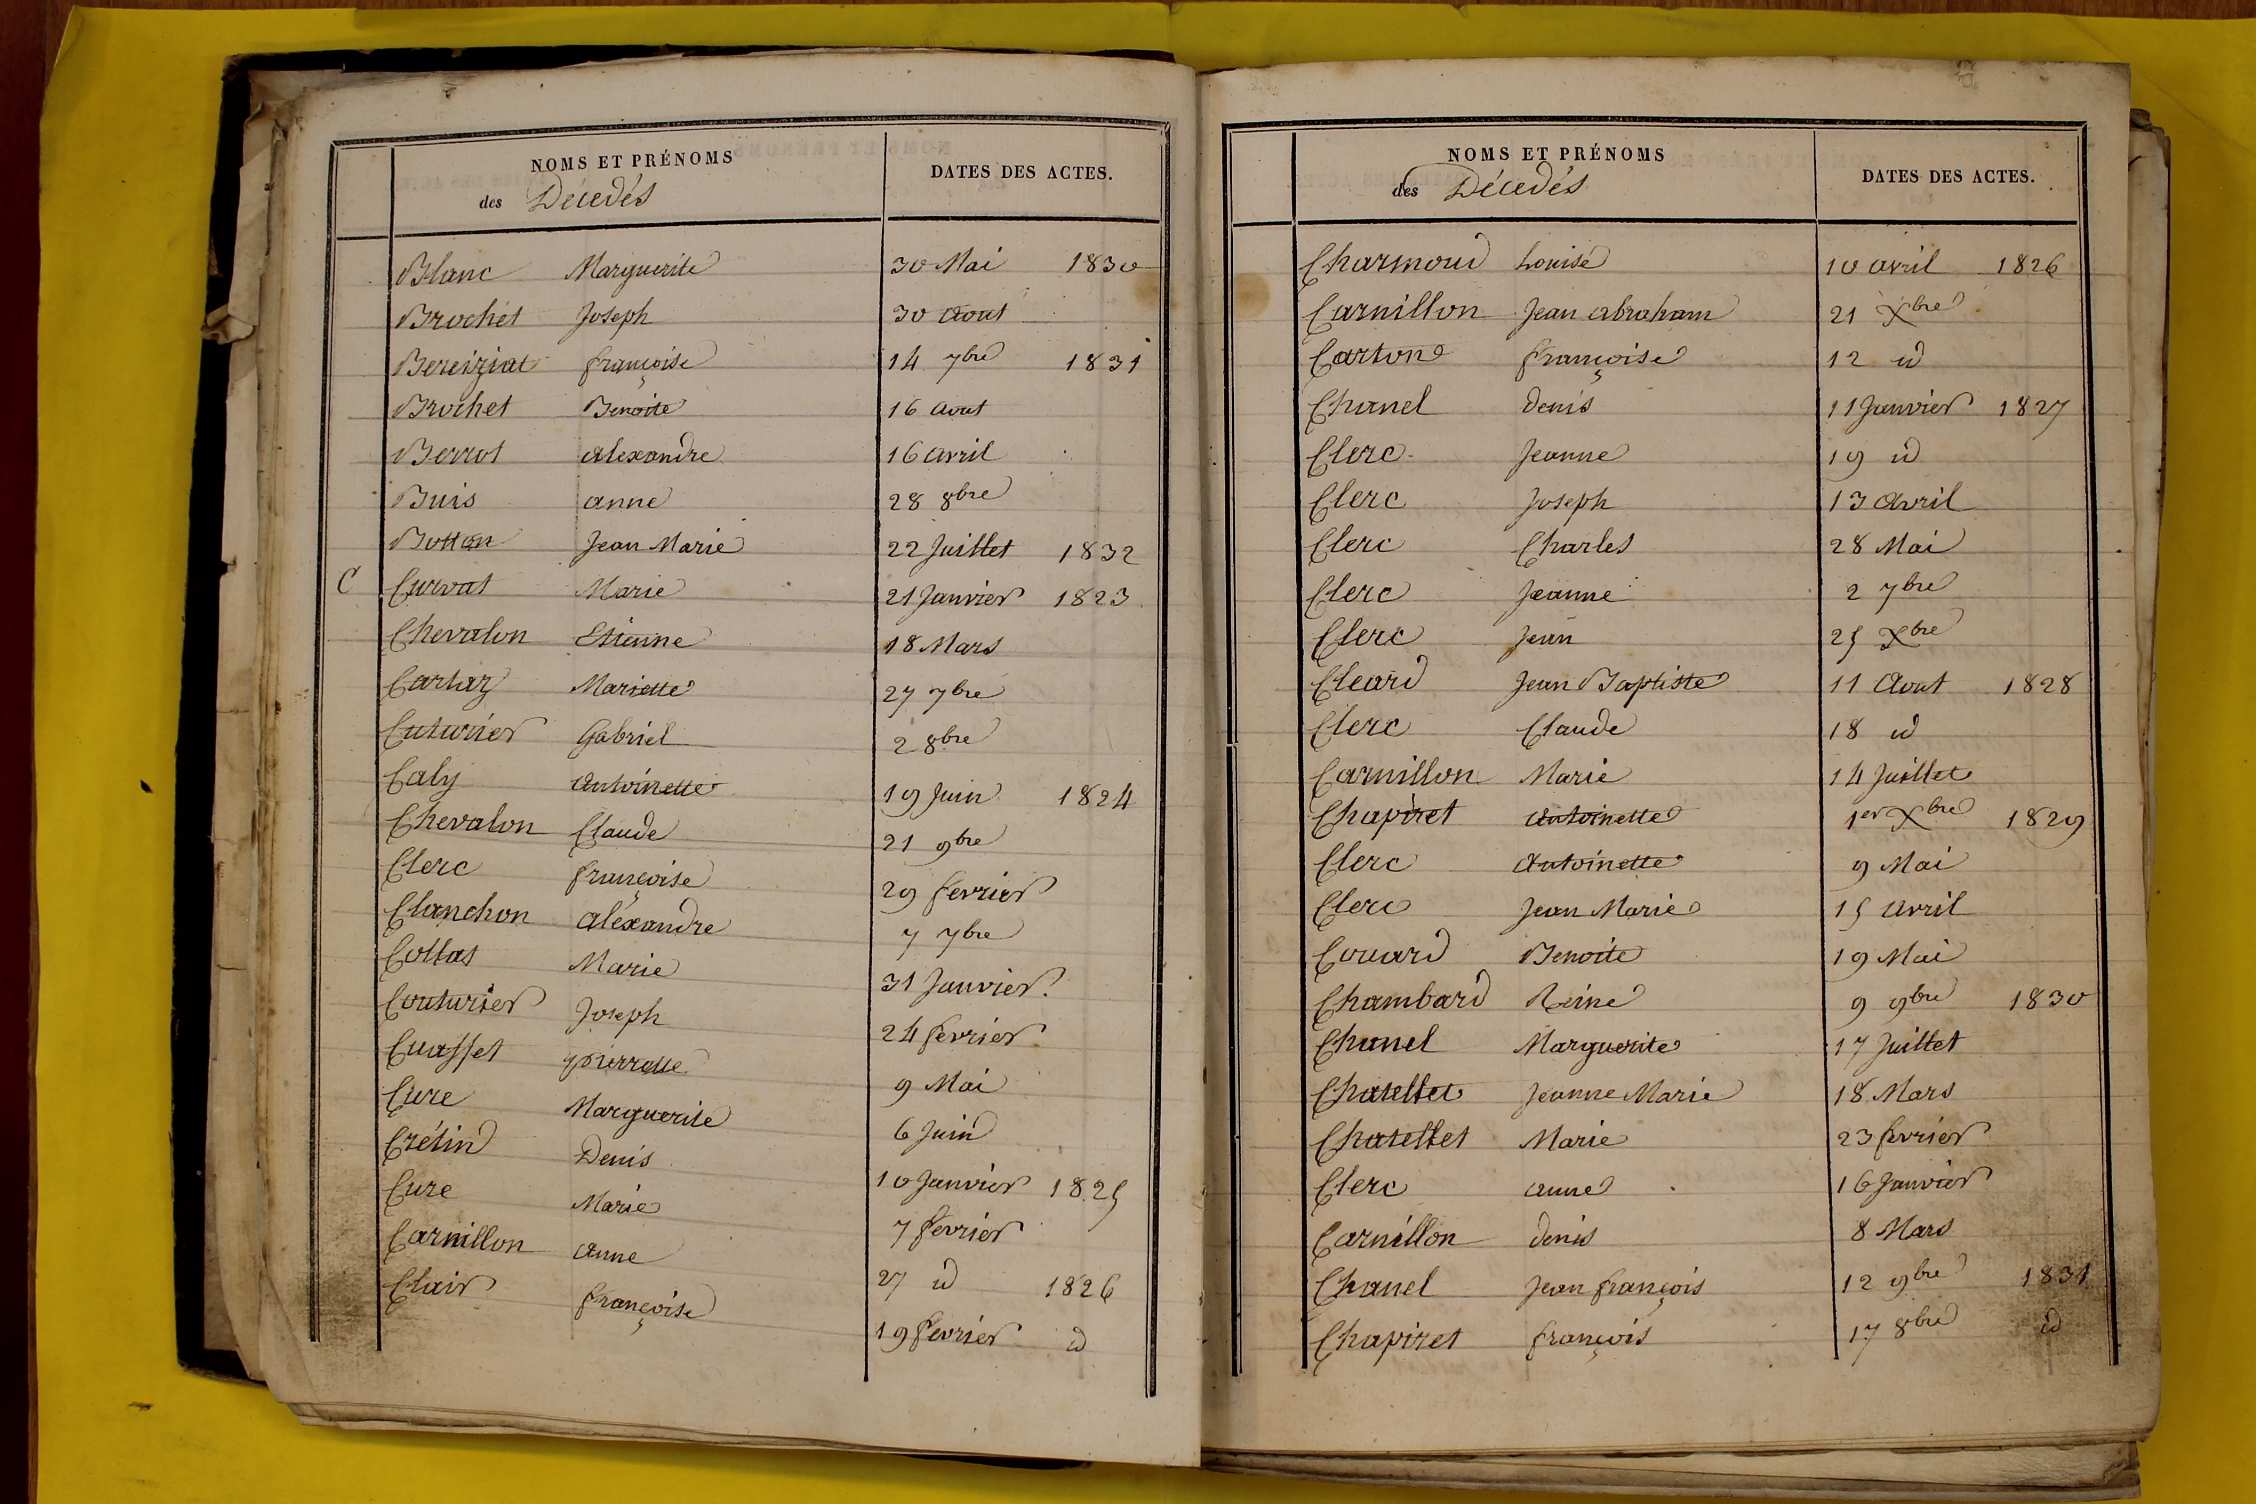 NOMS ET PRÉNOMS DATES DES ACTES.
des Décédés
Blanc Marguerite 30 Mai 1830
Brochet Joseph 30 aout
Bereiziat françoise 14 7bre 1831
Brochet Benoite 16 aout
Berrot alexandre 16 avril
Buis anne 28 8bre
Botton Jean Marie 22 Juillet 1832
C Curvat Marie 21 Janvier 1823
Chevalon Etienne 18 Mars
Cartaz Mariette 27 7bre
Cuturier Gabriel 2 8bre
Caly antoinette 19 Juin 1824
Chevalon Claude 21 9bre
Clerc françoise 29 fevrier
Clanchon alexandre 7 7bre
Collas Marie 31 Janvier.
Couturier Joseph 24 fevrier
Cuasset pierrette 9 Mai
Cure Marguerite 6 Juin
Crétin Denis 10 Janvier 1825
Cure Marie 7 fevrier
Carnillon anne 27 id 1826
Clair françoise 19 fevrier id
NOMS ET PRÉNOMS DATES DES ACTES.
des Décédés
Charmoud Louise 10 avril 1826
Carnillon Jean abraham 21 Xbre
Carton françoise 12 id
Chanel denis 11 Janvier 1827
Clerc Jeanne 19 id
Clerc Joseph 13 avril
Clerc Charles 28 Mai
Clerc Jeanne 2 7bre
Clerc Jean 25 Xbre
Cleard Jean Baptiste 11 Aout 1828
Clerc Claude 18 id
Carnillon Marie 14 Juillet
Chapiret antoinette 1er Xbre 1829
Clerc antoinette 9 Mai
Clerc Jean Marie 15 avril
Couard Benoite 19 Mai
Chambard Reine 9 9bre 1830
Chanel Marguerite 17 Juillet
Chatellet Jeanne Marie 18 Mars
Chatellet Marie 23 fevrier
Clerc anne 16 Janvier
Carnillon denis 8 Mars
Chanel Jean françois 12 9bre 1831
Chapiret françois 17 8bre id